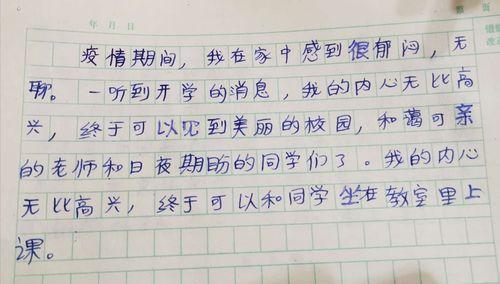 年 月 日
疫情期间，我在家中感到很郁闷，无
聊。一听到开学的消息，我的内心无比高
兴，终于可以见到美丽的校园，和蔼可亲
的老师和日夜期盼的同学们了。我的内心
无比高兴，终于可以和同学坐在教室里上
课。